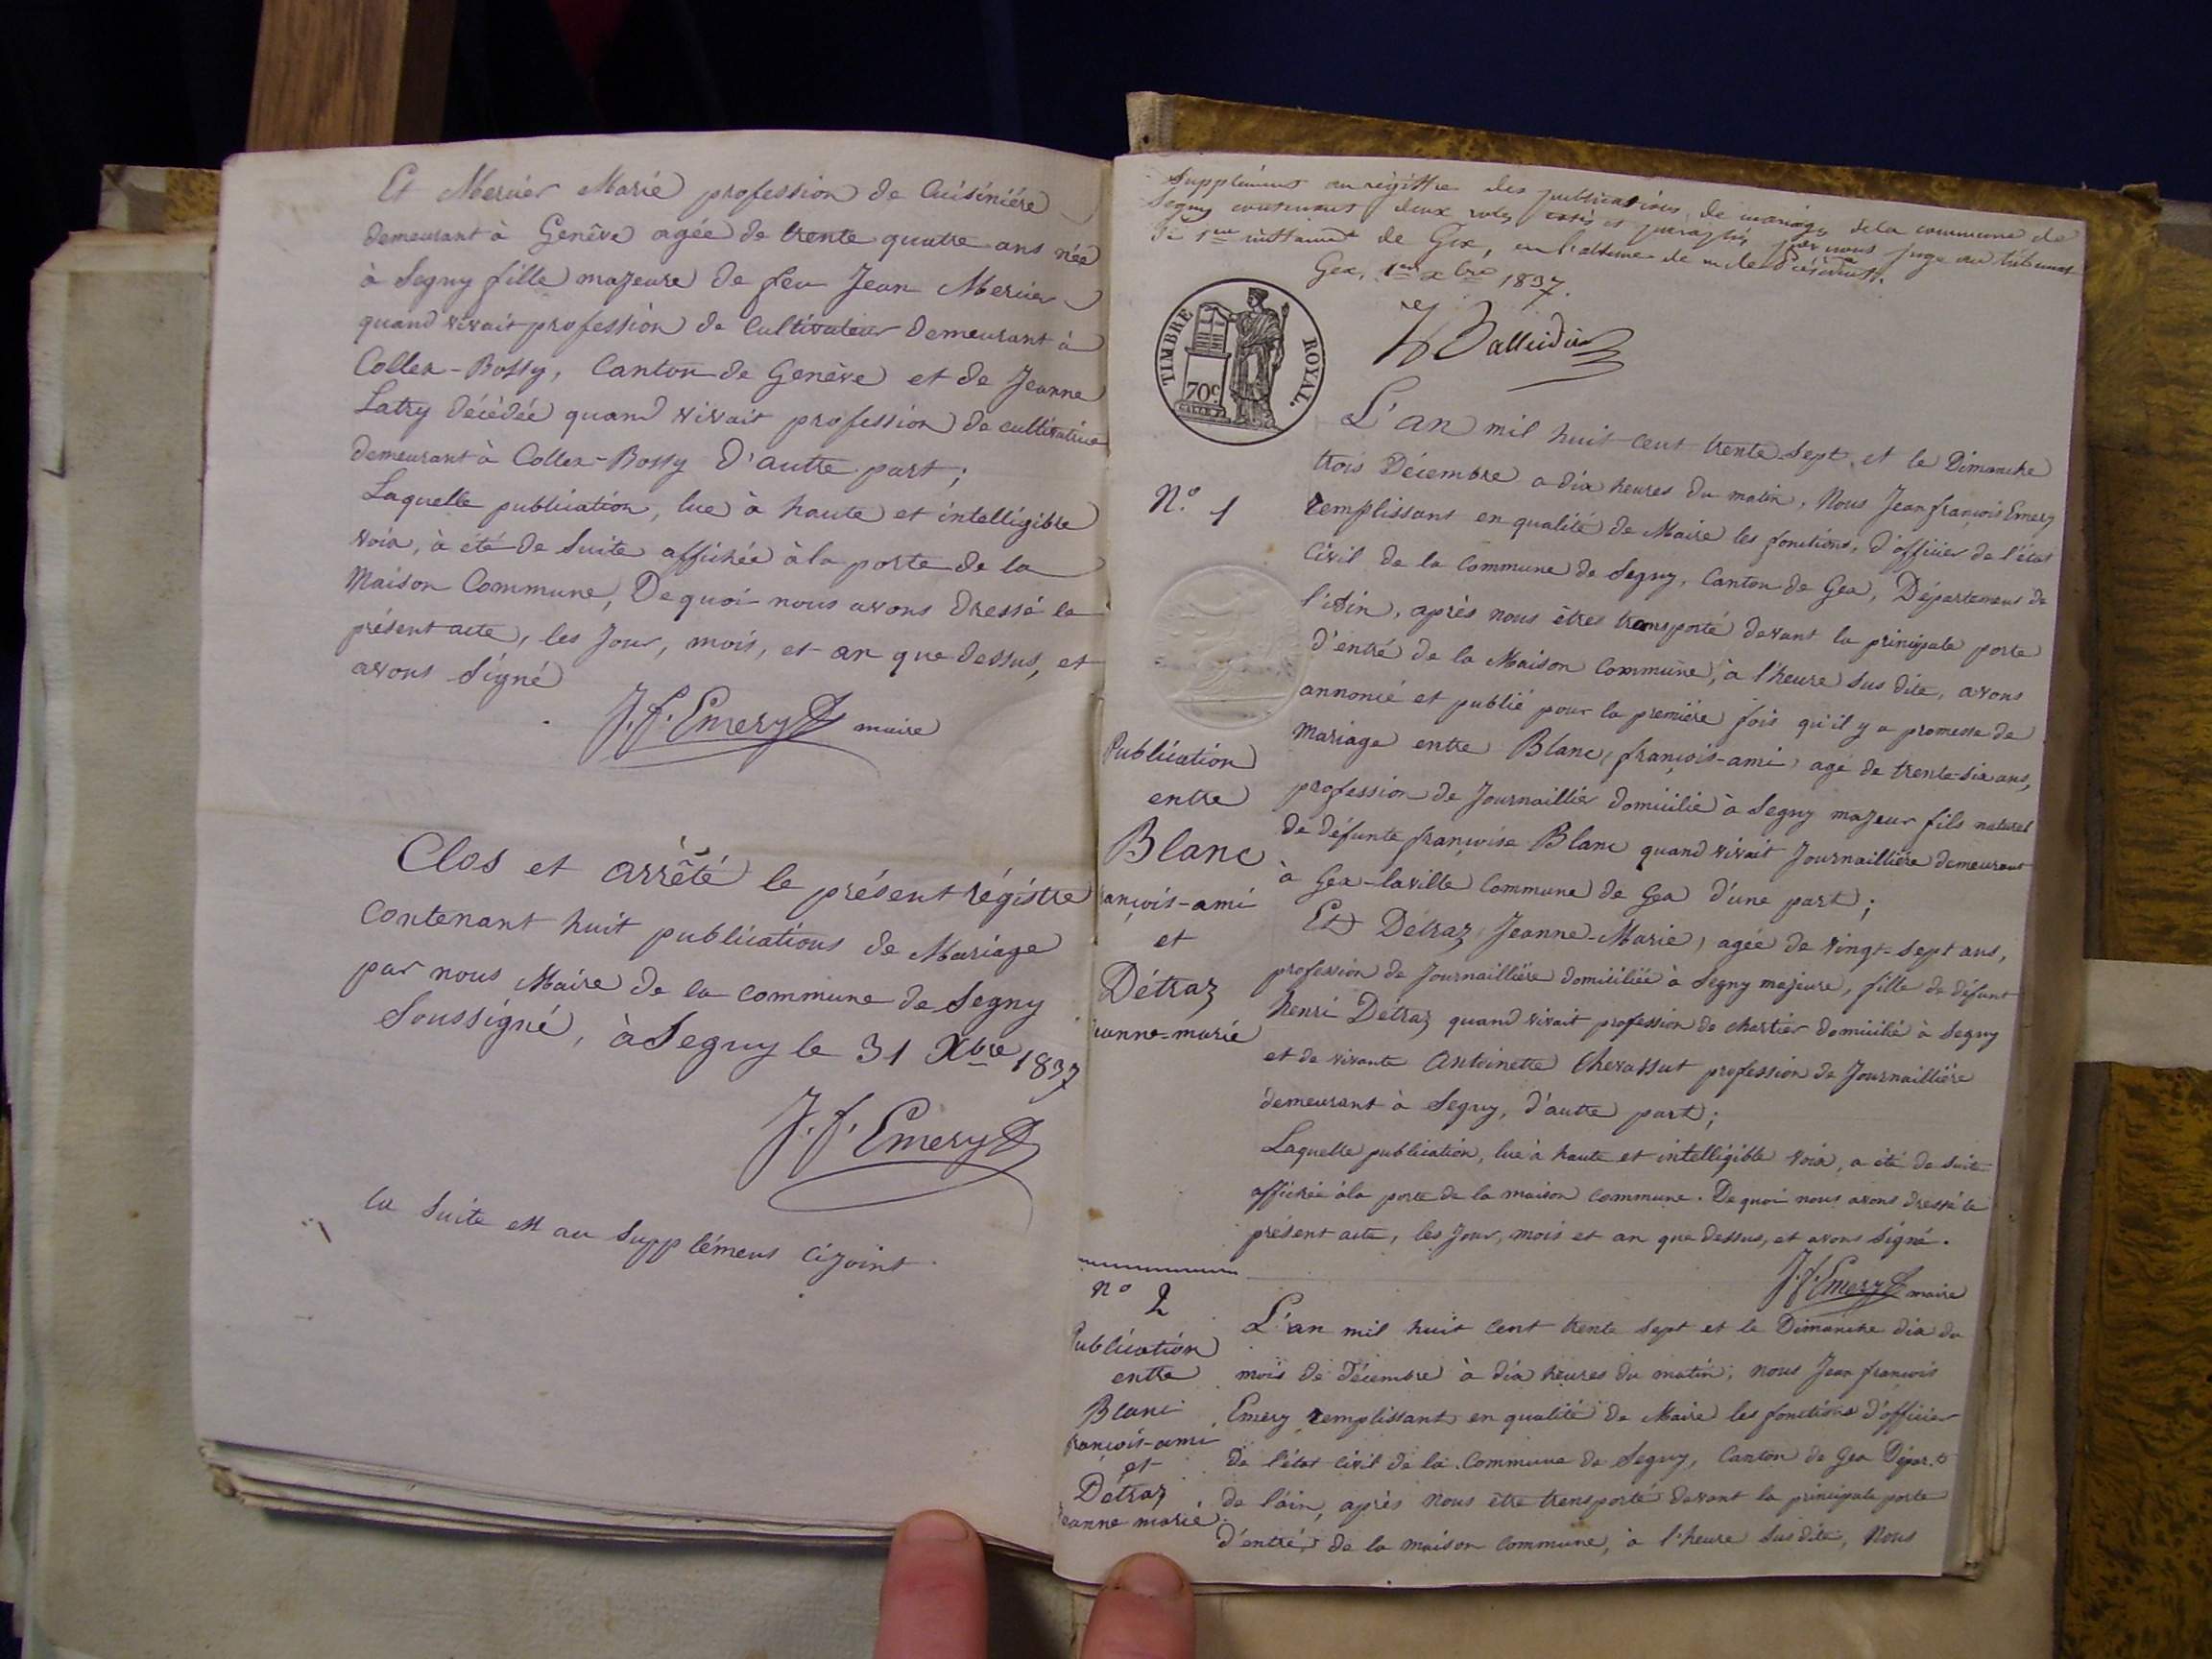 Et Mercier Marie profession de Cuisiniére
demeurant à Genêve agée de trente quatre ans née
à Segny fille majeure de feu Jean Mercier
quand vivait profession de Cultivateur demeurant à
Collex-Bossy, Canton de Genève et de Jeanne
Latry décédée quand vivait profession de cultivatrice
demeurant à Collex-Bossy d'autre part;
Laquelle publication, lue à haute et intelligible
voix, à été de suite affichée à la porte de la
Maison Commune, De quoi nous avons dressé le
présent acte, les Jour, mois, et an que dessus, et
avons signé
J. f. Emery maire
Clos et arrêté le présent régistre
Contenant huit publications de Mariage
par nous Maire de la commune de Segny
Soussigné, à Segny le 31 Xbre 1837
J. f. Emery
la Suite est au Supplémens Cijoint
Supplément au régistre des publications de mariage de la commune de
Segny contenant deux rôles cotés et paraphés par nous juge au tribunal
de 1ere instance de Gex, en l'absence de m. le Président.
Gex, 1er Xbre 1837.
TIMBRE ROYAL.
70c
L'an mil huit cent trente sept et le Dimanche
trois Décembre a dix heures du matin, Nous Jean françois Emery
remplissant en qualité de Maire les fonctions, d'officier de l'état
Civil de la Commune de Segny, Canton de Gex, Département de
l'Ain, après nous êtres transporté devant la principale porte
d'entré de la Maison Commune, à l'heure sus dite, avons
annoncé et publié pour la premiére fois qu'il y a promesse de
Mariage entre Blanc, françois-ami, agé de trente-six ans,
profession de Journaillier domicilié à Segny majeur fils naturel
de défunte françoise Blanc quand vivait Journailliére demeurant
à Gex-la ville Commune de Gex d'une part;
Et Détraz Jeanne-Marie, agée de vingt-sept ans,
profession de Journailliére domiciliée à Segny majeure, fille de défunt
henri Détraz quand vivait profession de chartier domicilié à Segny
et de vivante Antoinette Chevassut profession de Journailliére
demeurant à Segny, d'autre part;
Laquelle publication, lue à haute et intelligible voix, a été de suite
affichée à la porte de la maison commune. De quoi nous avons dressé le
présent acte, les Jour, mois et an que dessus, et avons signé.
J. f. Emery maire
N.o 1
Publication
entre
Blanc
rançois-ami
et
Détraz
anne-marie
L'an mil huit cent trente sept et le Dimanche dix du
mois de Décembre à dix heures du matin, nous Jean françois
Emery remplissant en qualité de Maire les fonctions d'officier
de l'état civil de la Commune de Segny, Canton de Gex Dépar.t
de l'ain, après nous être transporté devant la principale porte
d'entrée de la maison commune, à l'heure sus dite, Nous
n.o 2
Publication
entre
Blanc
françois-ami
et
Détraz
eanne marie